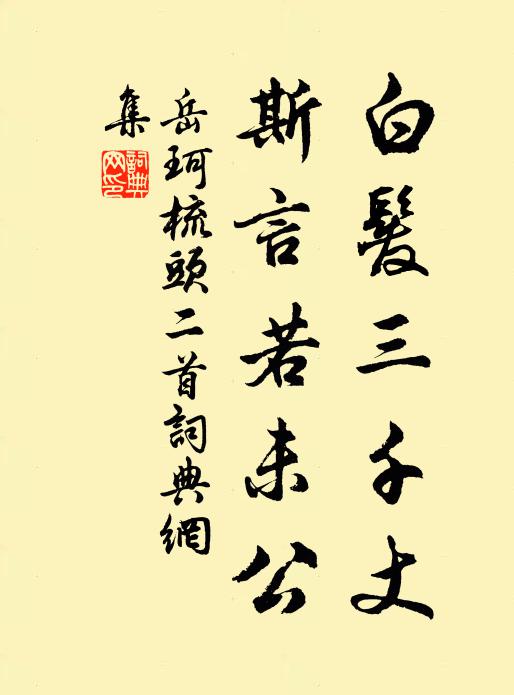 白髮三千丈
斯言若未公
岳珂梳頭二首詞典網
集
詞典
网印